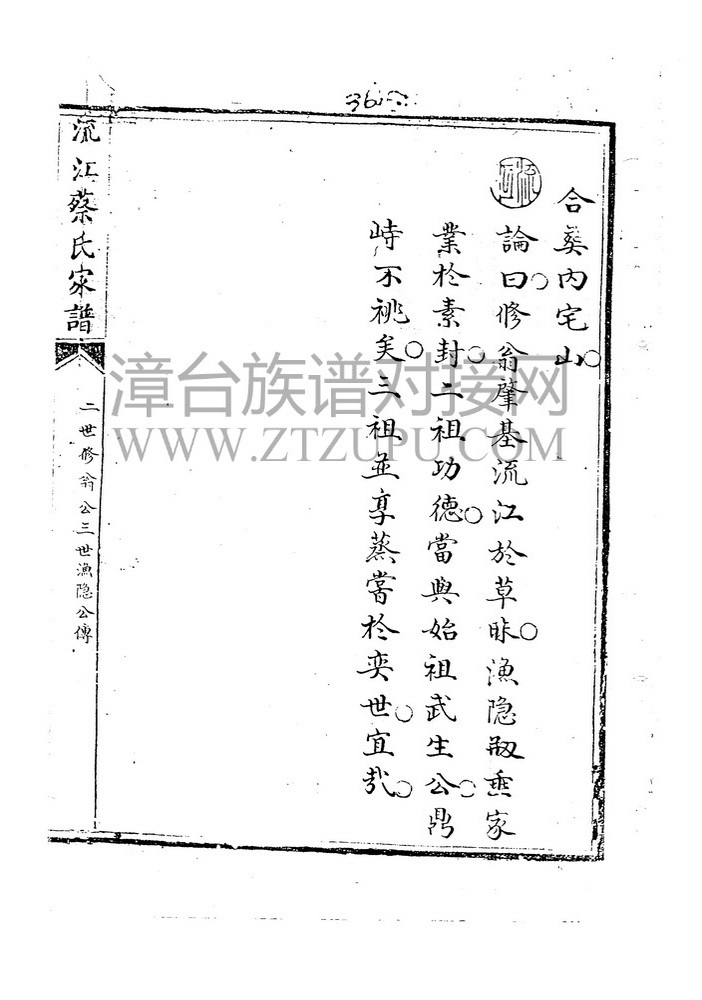 合葬内宅山。
論曰。修翁肇基流江於草昧。漁隐刱垂家
業於素封。二祖功德。當與始祖武生公。鼎
峙不祧矣。三祖並享蒸嘗於奕世。宜哉。
流江蔡氏家譜
二世修翁公三世漁隐公傳
漳台族谱对接网
WWW.ZTZUPU.COM